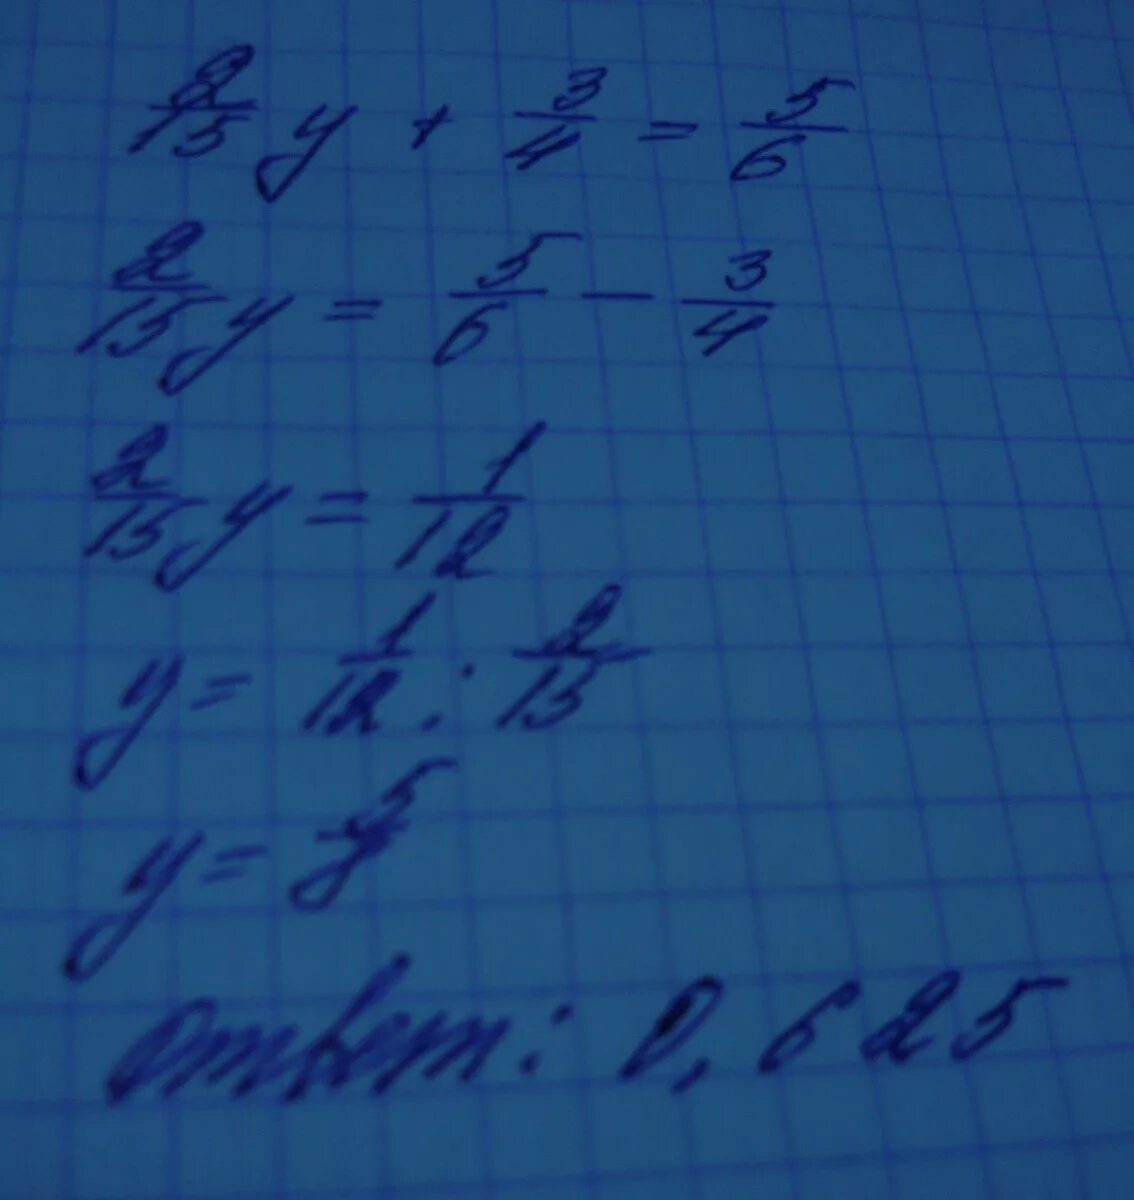 2/15 y + 3/4 = 5/6
2/15 y = 5/6 - 3/4
2/15 y = 1/12
y = 1/12 : 2/15
y = 5/8
Ответ: 0,625